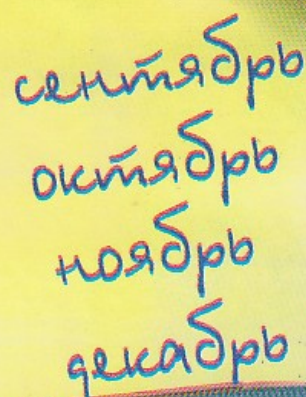 сентябрь
октябрь
ноябрь
декабрь